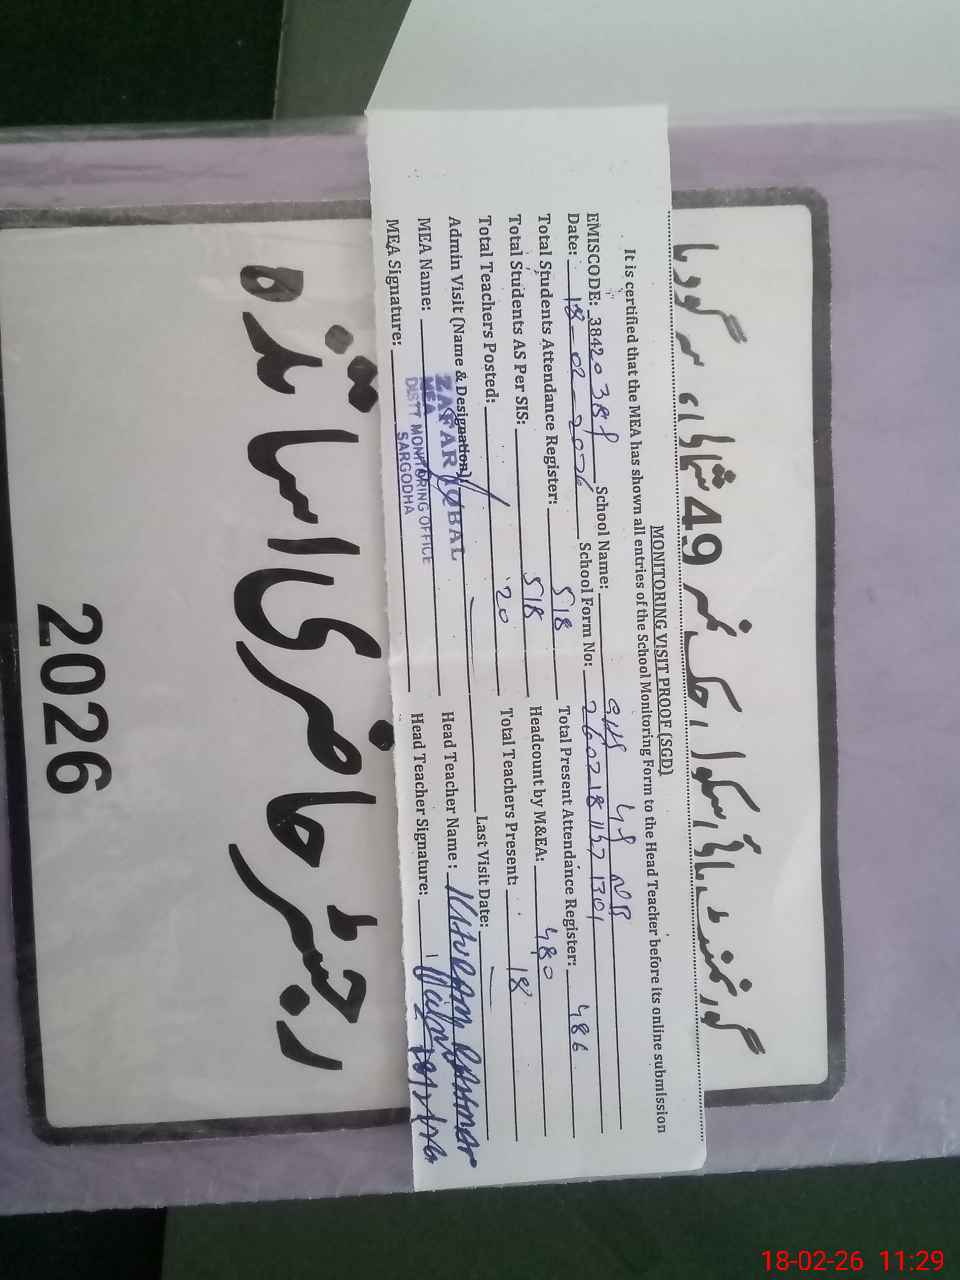 گورنمنٹ ہائی سکول چک نمبر 49 شمالی سرگودہا
MONITORING VISIT PROOF (SGD)
It is certified that the MEA has shown all entries of the School Monitoring Form to the Head Teacher before its online submission
EMISCODE: School Name: GHS 49 NB
Date: 18-02-2026 School Form No:
Total Students Attendance Register: 518 Total Present Attendance Register: 486
Total Students AS Per SIS: 518 Headcount by M&EA: 480
Total Teachers Posted: 20 Total Teachers Present: 18
Admin Visit (Name & Designation) Last Visit Date:
MEA Name: Head Teacher Name:
MEA Signature: Head Teacher Signature:
ZAFAR IQBAL
MEA
DISTT MONITORING OFFICE
SARGODHA
رجسٹر حاضری اساتذہ
2026
18-02-26 11:29